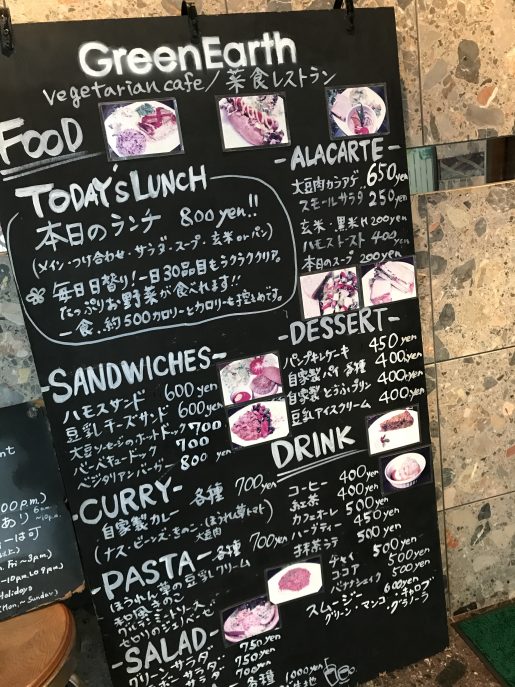 GreenEarth
vegetarian cafe/菜食レストラン
FOOD
TODAY'S LUNCH
本日のランチ 800yen!!
(メイン・つけ合わせ・サラダ・スープ・玄米orパン)
毎日日替り!一日30品目もラクラククリア。
たっぷりお野菜が食べれます!!
一食、約500カロリーとカロリーも控えめです。
-SANDWICHES-
ハモスサンド 600yen
豆乳チーズサンド 600yen
大豆ソーセージのホットドック 700
バーベキュードック 700
ベジタリアンバーガー 800 yen
-CURRY- 各種 700yen
自家製カレー
(ナス・ビーンズ・きのこ・ほうれん草トマト
大豆肉)
-PASTA- 各種 700yen
ほうれん草の豆乳クリーム
和風きのこ
-SALAD-
グリーンサラダ 750yen
750yen
700yen
各種 1,000yen
-ALACARTE-
大豆肉カラアゲ 650yen
スモールサラダ 250yen
玄米・黒米 200yen
ハモストースト 400yen
本日のスープ 200yen
-DESSERT-
パンプキンケーキ 450yen
自家製パイ各種 400yen
自家製とうふプリン 400yen
豆乳アイスクリーム 400yen
DRINK
コーヒー 400yen
紅茶 400yen
カフェオレ 500yen
ハーブティー 450yen
抹茶ラテ 500yen
チャイ 500yen
ココア 500yen
バナナシェイク 500yen
スムージー 600yen
グリーン・マンゴ・キャロブ・グラノーラ